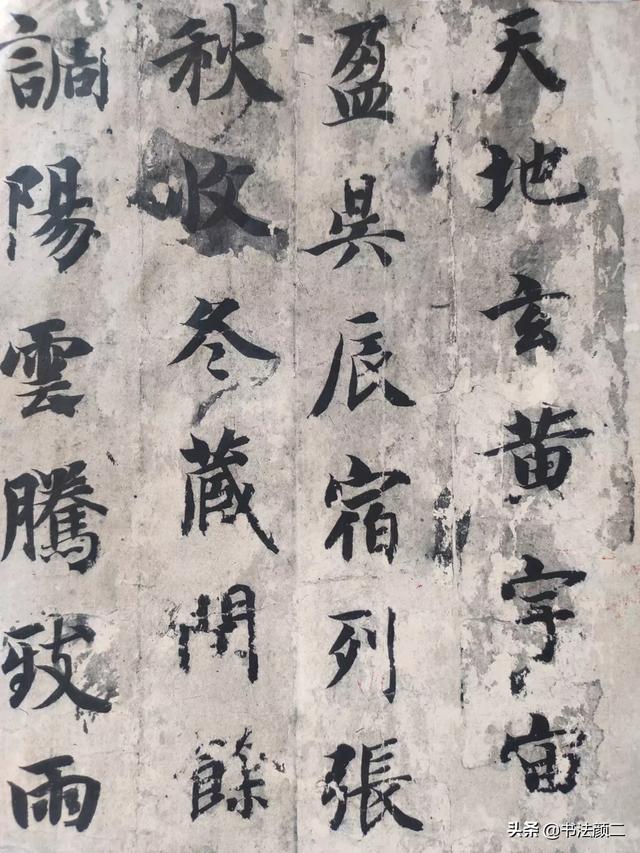 天地玄黄宇宙
盈昃辰宿列張
秋收冬藏閏餘
調陽雲騰致雨
头条 @书法颜二